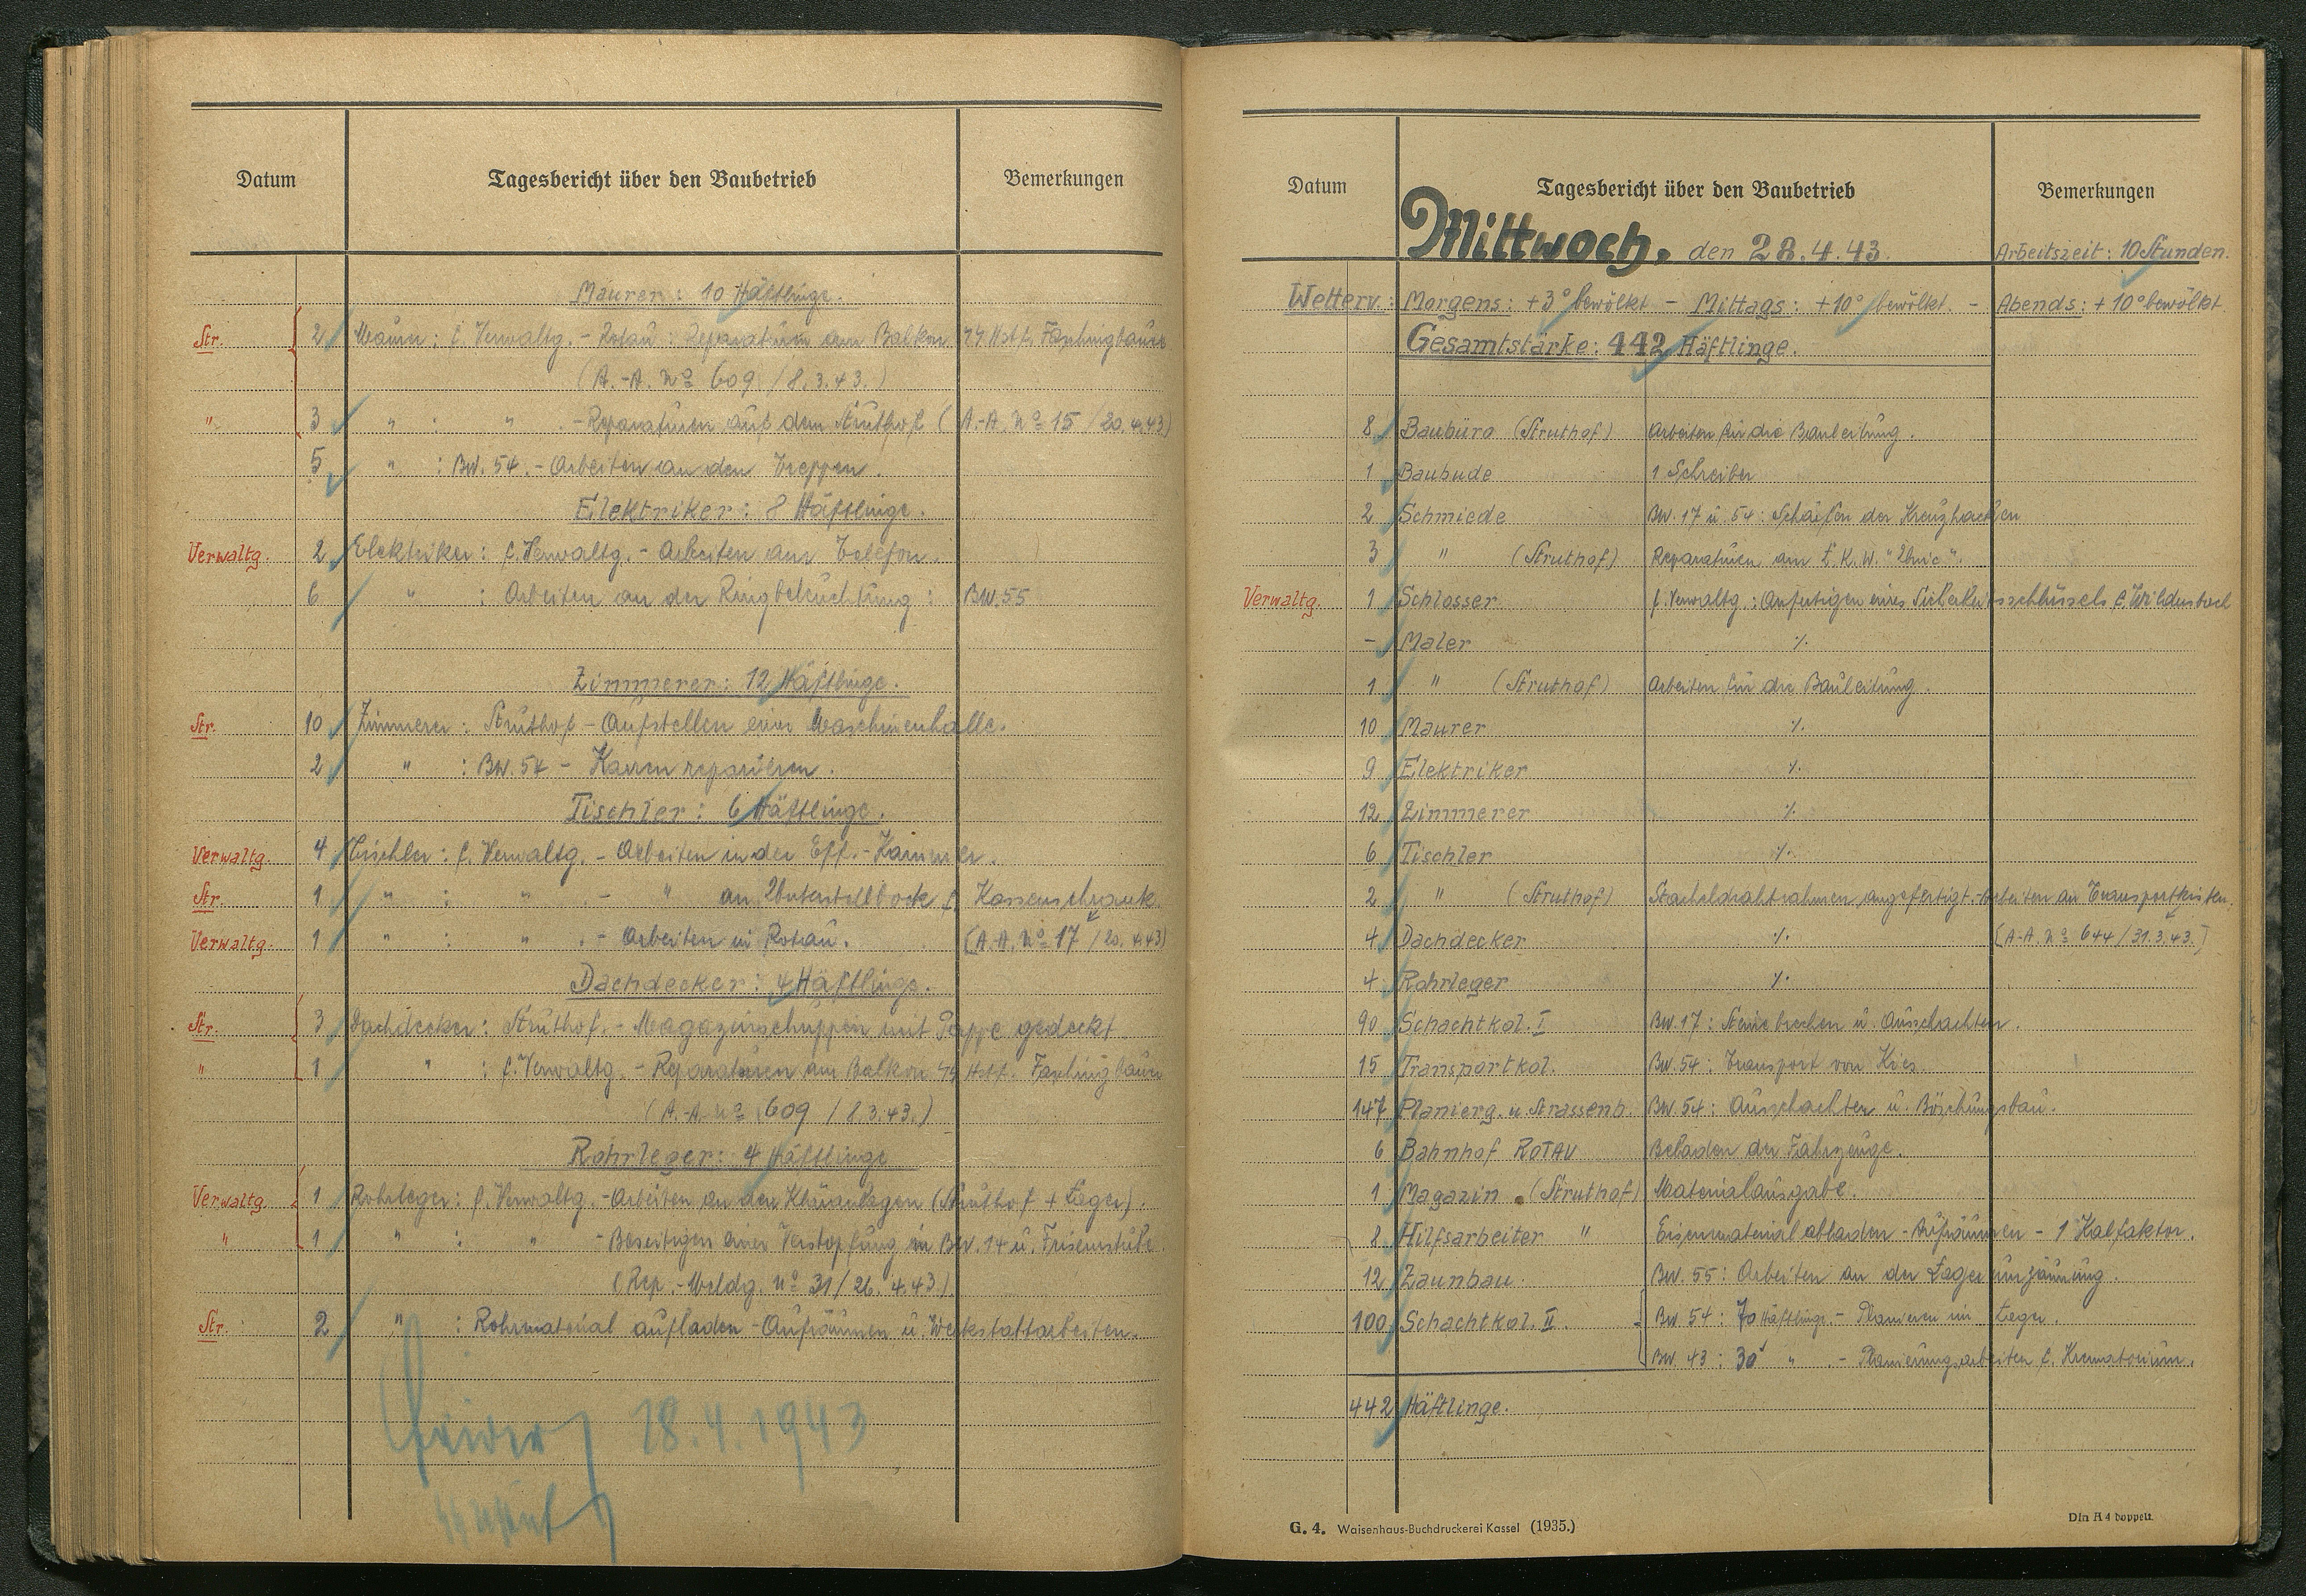 Datum Tagesbericht über den Baubetrieb Bemerkungen
Maurer: 10 Häftlinge.
Str. 2 Maurer: f. Verwaltg. - Rotau: Reparaturen am Balkon
(A.-A. No 609 / 8.3.43.)
" 3 " : " - Reparaturen auf dem Struthof (A.-A. No 15 / 20.4.43)
5 " : BW. 54. - Arbeiten an den Treppen.
Elektriker: 8 Häftlinge.
Verwaltg. 2 Elektriker: f. Verwaltg. - Arbeiten am Telefon.
6 " : Arbeiten an der Ringbeleuchtung: BW. 55
Zimmerer: 12 Häftlinge.
Str. 10 Zimmerer: Struthof - Aufstellen einer Maschinenhalle.
2 " : BW. 54 - Karren reparieren.
Tischler: 6 Häftlinge.
Verwaltg. 4 Tischler: f. Verwaltg. - Arbeiten in der Eff.-Kammer.
Str. 1 " : " - " an Unterstellbock f. Kassenschrank.
Verwaltg. 1 " : " - Arbeiten in Rotau. (A.A. No 17 / 20.4.43)
Dachdecker: 4 Häftlinge.
Str. 3 Dachdecker: Struthof. - Magazinschuppen mit Pappe gedeckt.
" 1 " : f. Verwaltg. - Reparaturen am Balkon
(A.-A. No 609 / 8.3.43.)
Rohrleger: 4 Häftlinge
Verwaltg 1 Rohrleger: f. Verwaltg. - Arbeiten an den Kläranlagen (Struthof + Lager).
" 1 " : " - Beseitigen einer Verstopfung in BW. 14 u. Friseurstube.
(Rep.-Meldg. No 31 / 26.4.43).
Str. 2 " : Rohrmaterial aufladen - Aufräumen u. Werkstattarbeiten.
28.4.1943
Datum Tagesbericht über den Baubetrieb Bemerkungen
Mittwoch, den 28.4.43. Arbeitszeit: 10 Stunden.
Wetterv.: Morgens: +3° bewölkt - Mittags: +10° bewölkt. - Abends: +10° bewölkt
Gesamtstärke: 442 Häftlinge.
8 Baubüro (Struthof) Arbeiten für die Bauleitung.
1 Baubude 1 Schreiber
2 Schmiede BW. 17 u. 54: Schärfen der Kreuzhacken
3 " (Struthof) Reparaturen am L.K.W.
Verwaltg. 1 Schlosser f. Verwaltg.: Anfertigen eines Sicherheitsschlüssels
- Maler ·/.
1 " (Struthof) Arbeiten für die Bauleitung.
10 Maurer ·/.
9 Elektriker ·/.
12 Zimmerer ·/.
6 Tischler ·/.
2 " (Struthof) Stacheldrahtrahmen angefertigt. - Arbeiten an Transportkisten.
4 Dachdecker ·/. (A-A. No 644 / 31.3.43.)
4 Rohrleger ·/.
90 Schachtkol. I BW. 17: Steine brechen u. Ausschachten.
15 Transportkol. BW. 54: Transport von Kies.
147 Planierg. u. Strassenb. BW. 54: Ausschachten u. Böschungsbau.
6 Bahnhof ROTAU Beladen der Fahrzeuge.
1 Magazin (Struthof) Materialausgabe.
8 Hilfsarbeiter " Eisenmaterial abladen - Aufräumen - 1 Kalfaktor.
12 Zaunbau. BW. 55: Arbeiten an der Lagerumzäunung.
100 Schachtkol. II. BW 54: 70 Häftlinge. - Planieren im Lager.
BW. 43: 30 " - Planierungsarbeiten f. Krematorium.
442 Häftlinge.
G. 4. Waisenhaus-Buchdruckerei Kassel (1935.) Din A 4 doppelt.